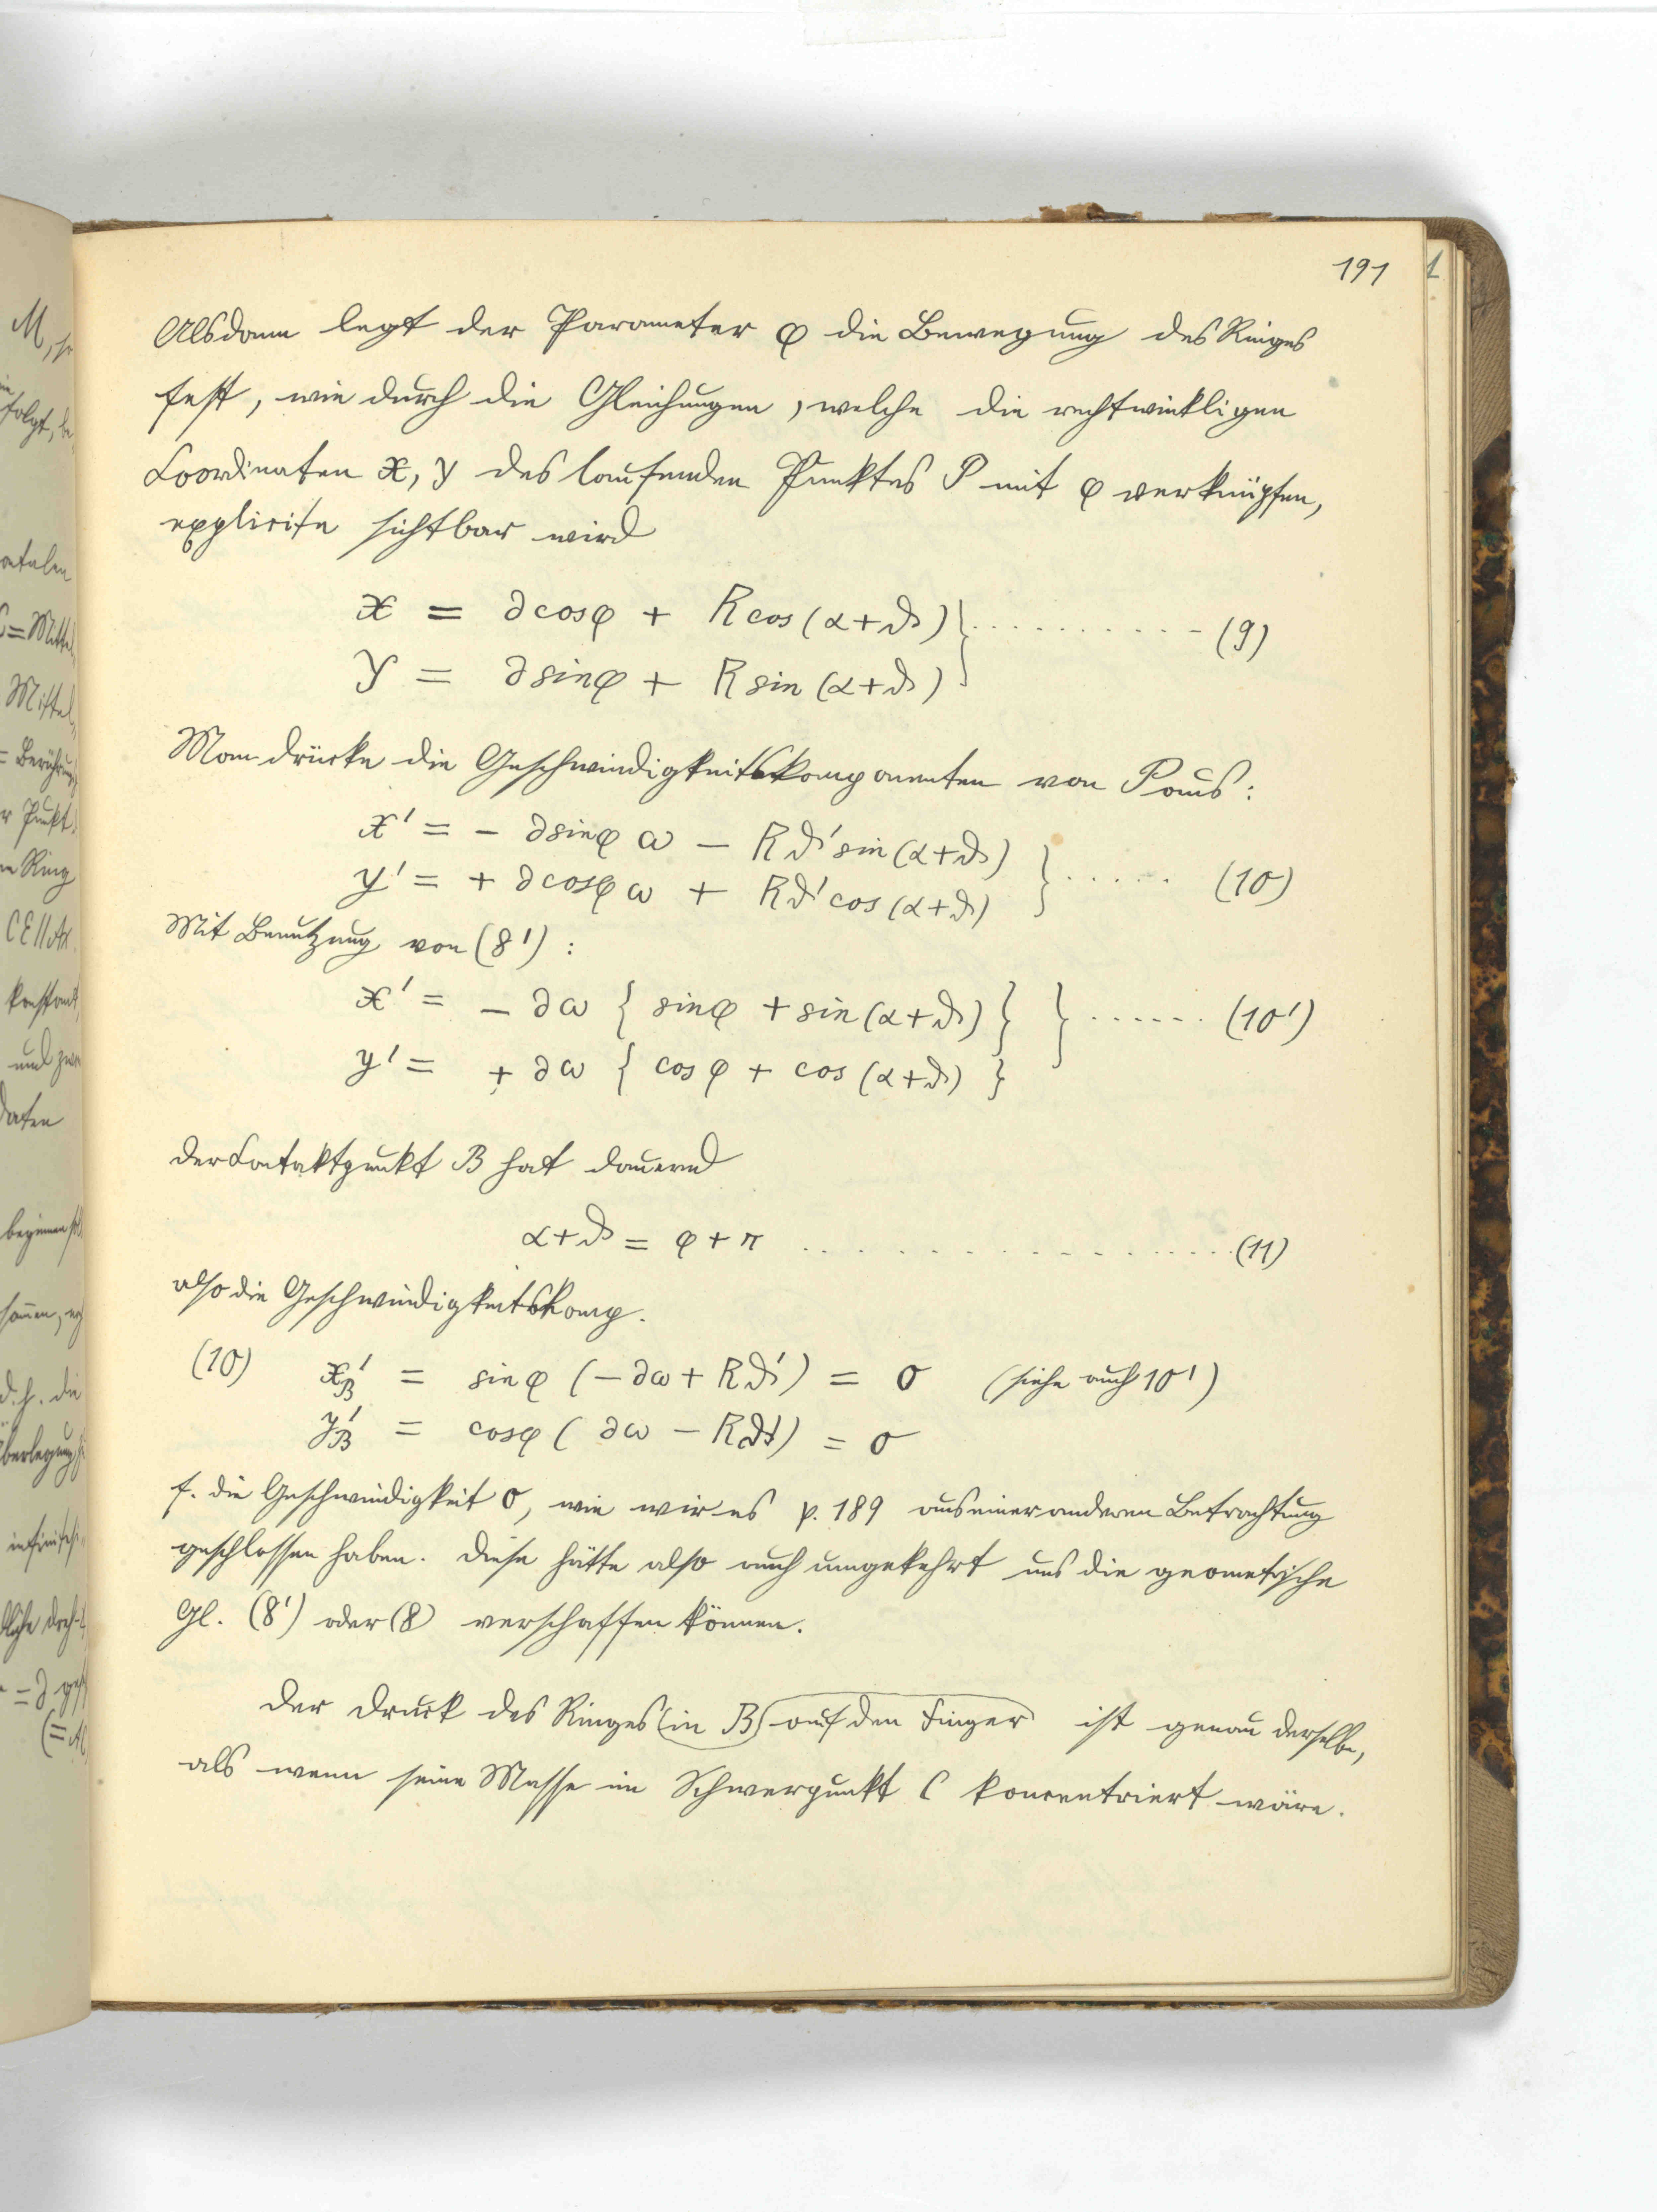 191
1
Alsdann legt der Parameter φ die Bewegung des Ringes
fest, wie durch die Gleichungen, welche die rechtwinkligen
Coordinaten x, y des laufenden Punktes P mit φ verknüpfen,
explicite sichtbar wird
x = ∂cosφ + Rcos(α+ϑ) } .......... (9)
y = ∂sinφ + Rsin(α+ϑ)
Man drücke die Geschwindigkeitskomponenten von P aus:
x' = - ∂sinφ ω - Rϑ'sin(α+ϑ)
y' = + ∂cosφ ω + Rϑ'cos(α+ϑ) } ..... (10)
Mit Benutzung von (8') :
x' = - ∂ω { sinφ + sin(α+ϑ) } } ...... (10')
y' = + ∂ω { cosφ + cos(α+ϑ) }
der Contaktpunkt B hat dauernd
α+ϑ = φ+π .................. (11)
also die Geschwindigkeitskomp.
(10) x'_B = sinφ (-∂ω + Rϑ') = 0 (siehe auch 10')
y'_B = cosφ ( ∂ω - Rϑ') = 0
f. die Geschwindigkeit 0, wie wir es p. 189 aus einer anderen Betrachtung
geschlossen haben. Diese hätte also auch umgekehrt uns die geometrische
Gl. (8') oder (8) verschaffen können.
Der Druck des Ringes (in B) auf den Finger ist genau derselbe,
als wenn seine Masse im Schwerpunkt C koncentriert wäre.